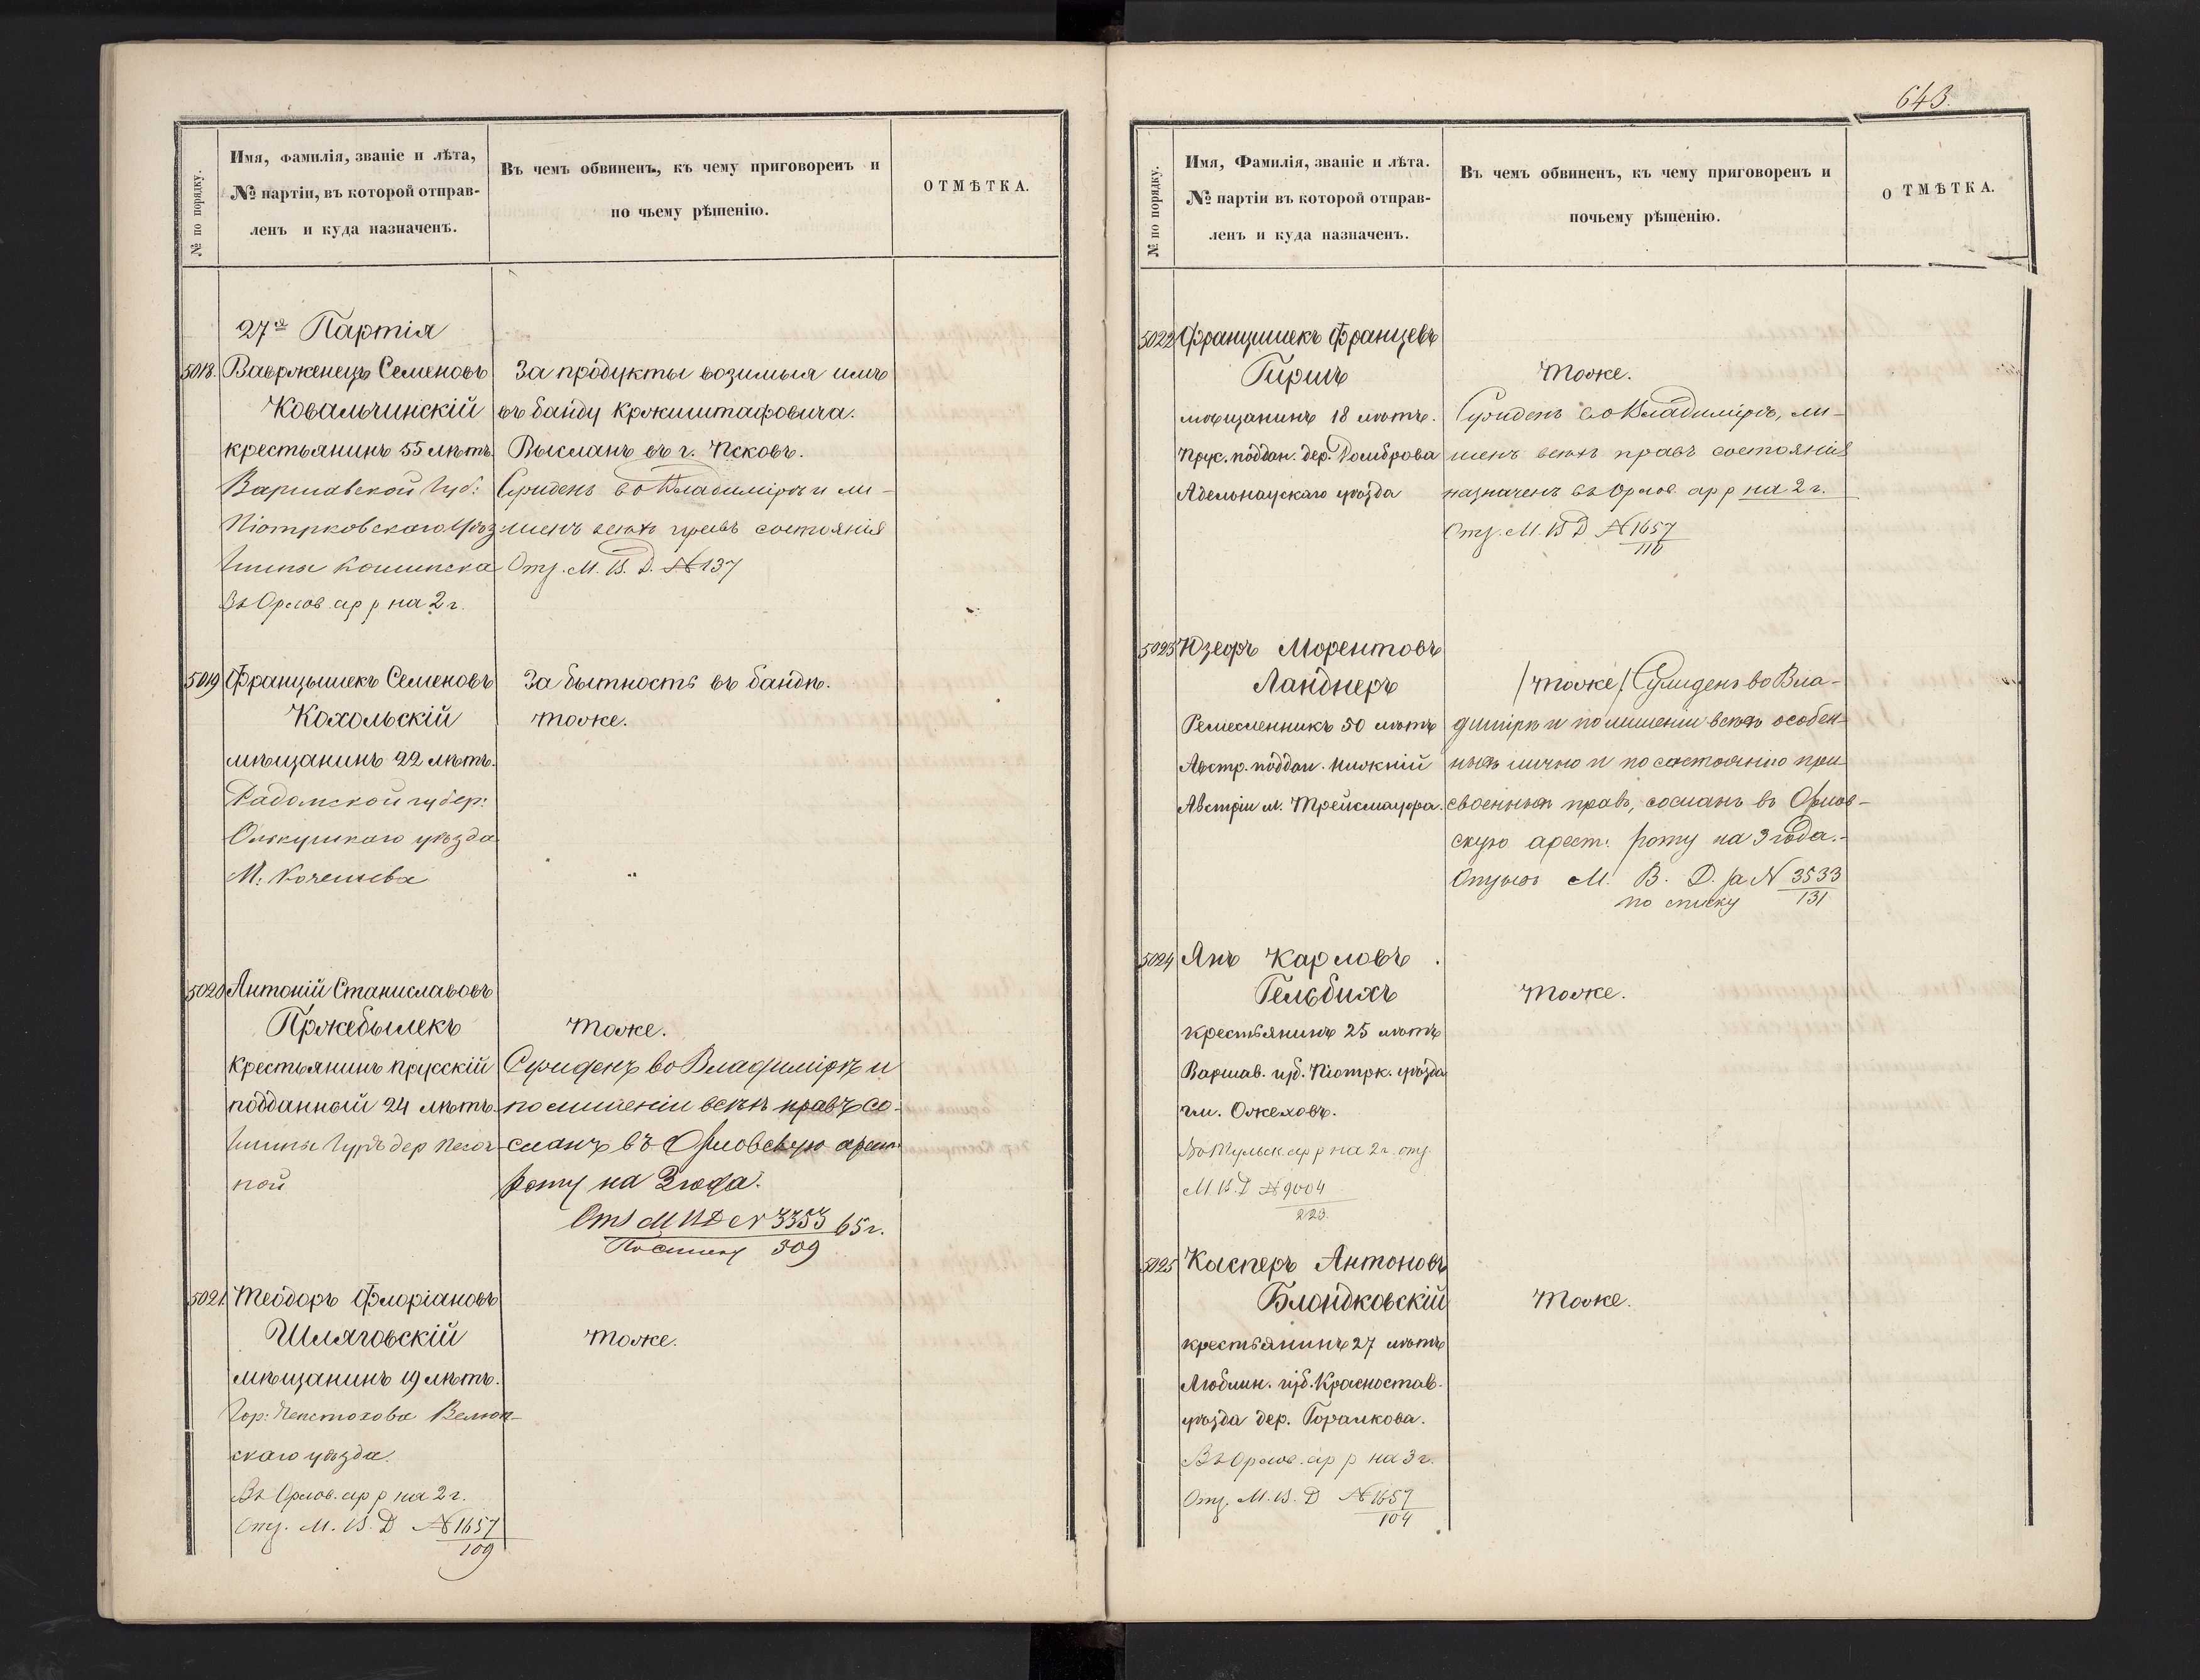 № по порядку.
Имя, фамилія, званіе и лѣта,
№ партіи, въ которой отправ-
ленъ и куда назначенъ.
Въ чемъ обвиненъ, къ чему приговоренъ и
по чьему рѣшенію.
ОТМѢТКА.
27я Партія
5018. Ваврженецъ Семеновъ
Ковальчинскій
крестьянинъ 55 лѣтъ.
Варшавской Губ:
Піотрковскаго Уѣз
Гмины
Въ Орлов ар р на 2 г.
За продукты возимыя имъ
въ банду Кржиштафовича.
Высланъ въ г. Псковъ.
Сужденъ во Владимірѣ и ли-
шенъ всѣхъ правъ состоянія
Отз. М. В. Д. № 137
5019 Францышекъ Семеновъ
Кохольскій
мѣщанинъ 22 лѣтъ.
Радомской губер:
Олькушскаго уѣзда
М:
За бытность въ бандѣ.
тоже.
5020 Антоній Станиславовъ
Пржебылекъ
крестьянинъ прусскій
подданный 24 лѣтъ.
Гмины дер
ной
тоже.
Сужденъ во Владимірѣ и
по лишеніи всѣхъ правъ со-
сланъ въ Орловскую арест.
роту на 2 года.
Отз М В Д № 3353 65 г.
По списку 309
5021. Теодоръ Флоріановъ
Шляговскій
мѣщанинъ 19 лѣтъ.
Гор: Ченстохова Велюн-
скаго уѣзда.
Въ Орлов. ар р на 2 г.
Отз. М. В. Д № 1657
109
тоже.
643.
№ по порядку.
Имя, Фамилія, званіе и лѣта.
№ партіи въ которой отправ-
ленъ и куда назначенъ.
Въ чемъ обвиненъ, къ чему приговоренъ и
почьему рѣшенію.
ОТМѢТКА.
5022 Францишекъ Францевъ
Гиршъ
мѣщанинъ 18 лѣтъ.
Прус. поддан. дер. Домброва
Адельнаускаго уѣзда
тоже.
Сужденъ во Владимірѣ, ли-
шенъ всѣхъ правъ состоянія
назначенъ въ Орлов. ар р на 2 г.
Отз. М. В Д № 1657
110
5023 Юзефъ Морентовъ
Ланднеръ
Ремесленникъ 50 лѣтъ
Австр. поддан. нижній
Австріи м. Трейсмауфра.
/тоже/ Сужденъ во Вла-
димірѣ и по лишеніи всѣхъ особен-
ныхъ лично и по состоянію при-
своенныхъ правъ, сосланъ въ Орлов-
скую арест. роту на 3 года.-
Отзывъ М. В. Д. за N 3533
по списку 131
5024 Янъ Карловъ
Гельбихъ
крестьянинъ 25 лѣтъ
Варшав. губ. Піотрк. уѣзда
гм. Ожеховъ.
Въ Тульск. ар р на 2 г. отз.
М. В. Д № 9004
223.
тоже.
5025 Касперъ Антоновъ
Блондковскій
крестьянинъ 27 лѣтъ
Люблин. губ. Красностав.
уѣзда дер. Горалкова.
Въ Орлов. ар р на 3 г.
Отз. М. В. Д № 1657
104
тоже.